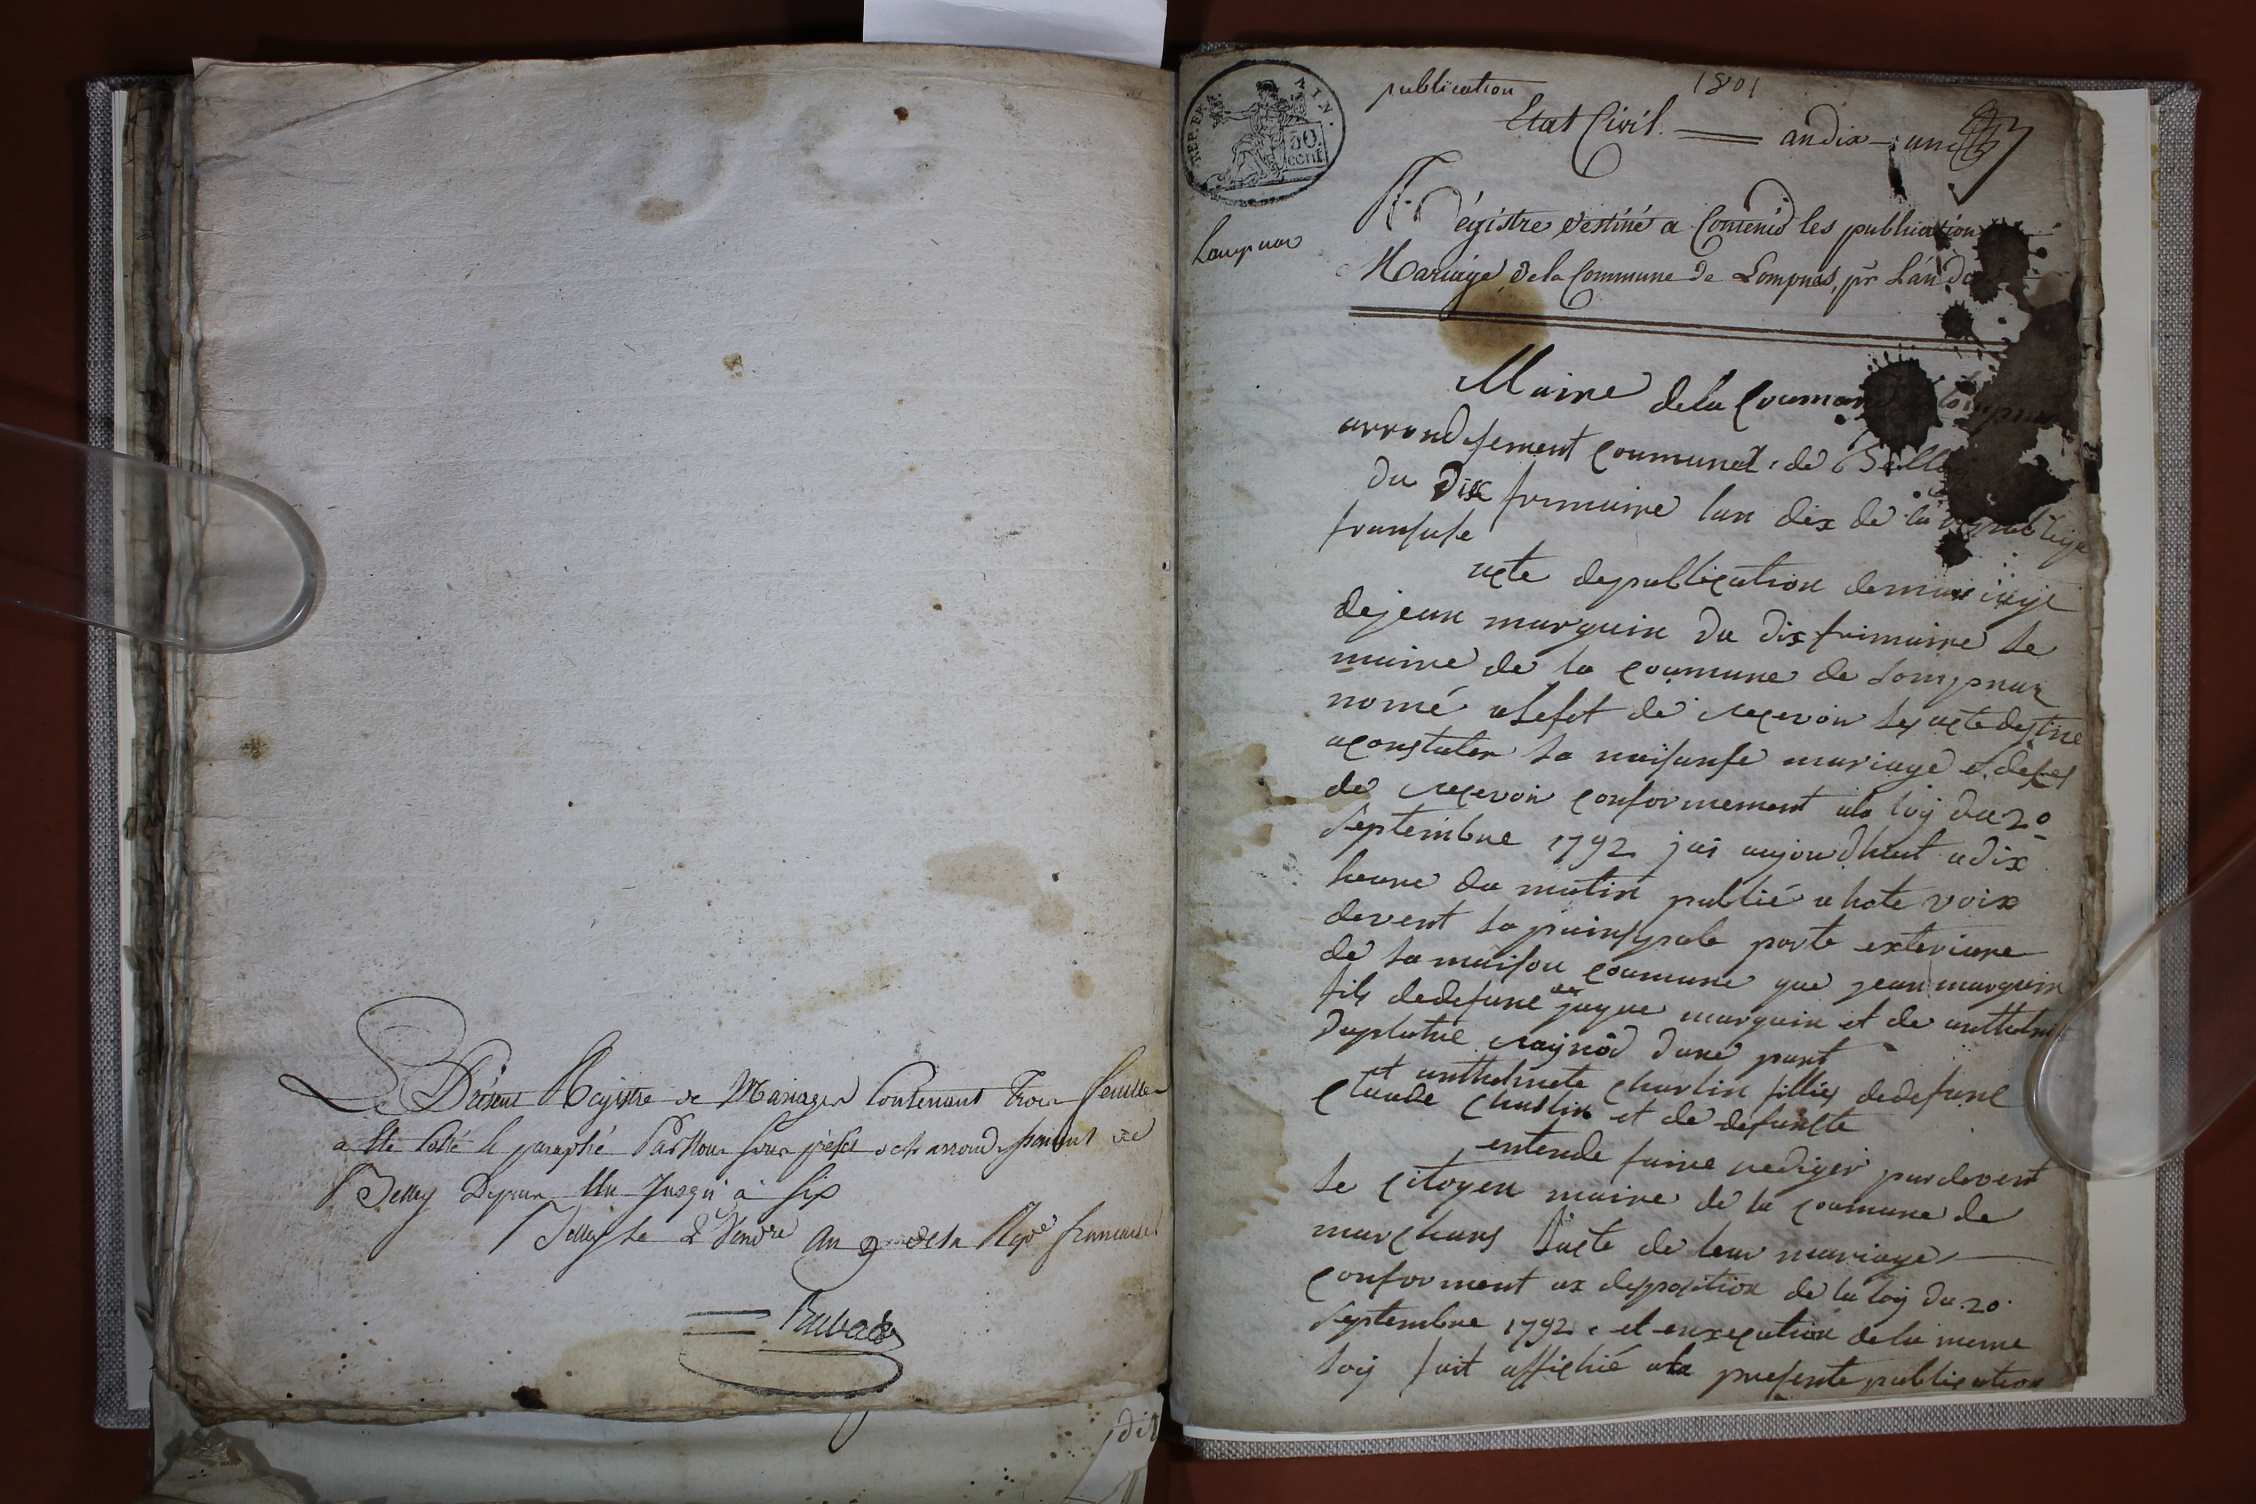 Le Présent Registre de Mariages Contenant Trois feuilles
a été Cotté & paraphé Par Nous sous préfet de l'arrondissement de
Belley Depuis Un Jusqu'à Six
Belley le 2 Vendre An 9 de la Repe francaise
publication
1801
REP. FRA. AIN.
50 cent
Etat Civil. an dix
Lompnas
Régistre destiné a Contenir les publication
Mariage de la Commune de Lompnas, pr L'an
Maire de la Coumune lompnas
arrondisement coumunal de Belley
du Dix frimaire lan dix de la republique
fransaise
acte de publication de mariage
de jean marquin du dix frimaire le
maire de la coumune de Lompnaz
nomé alefet de recevoir les acte destine
aconstater la naisanse mariage et deses
de recevoir conformement ala loy du 20
septembre 1792 jai aujourdhuit a dix
heure du matin publié a hote voix
devent la prinsypale porte exterieure
de la maison coumune que jean marquin
fils dedefunt jaque marquin et de anthelm
duplatre raynod dune part
et anthelmete charlin fillie dedefunt
claude charlin et de defuncte
entende faire rediger pardevent
le citoyen maire de la coumune de
marchans lacte de leur mariage
conforment ax desposition de la loy du 20
septembre 1792. et enxecution dela meme
loy fait affichié ala presente publication